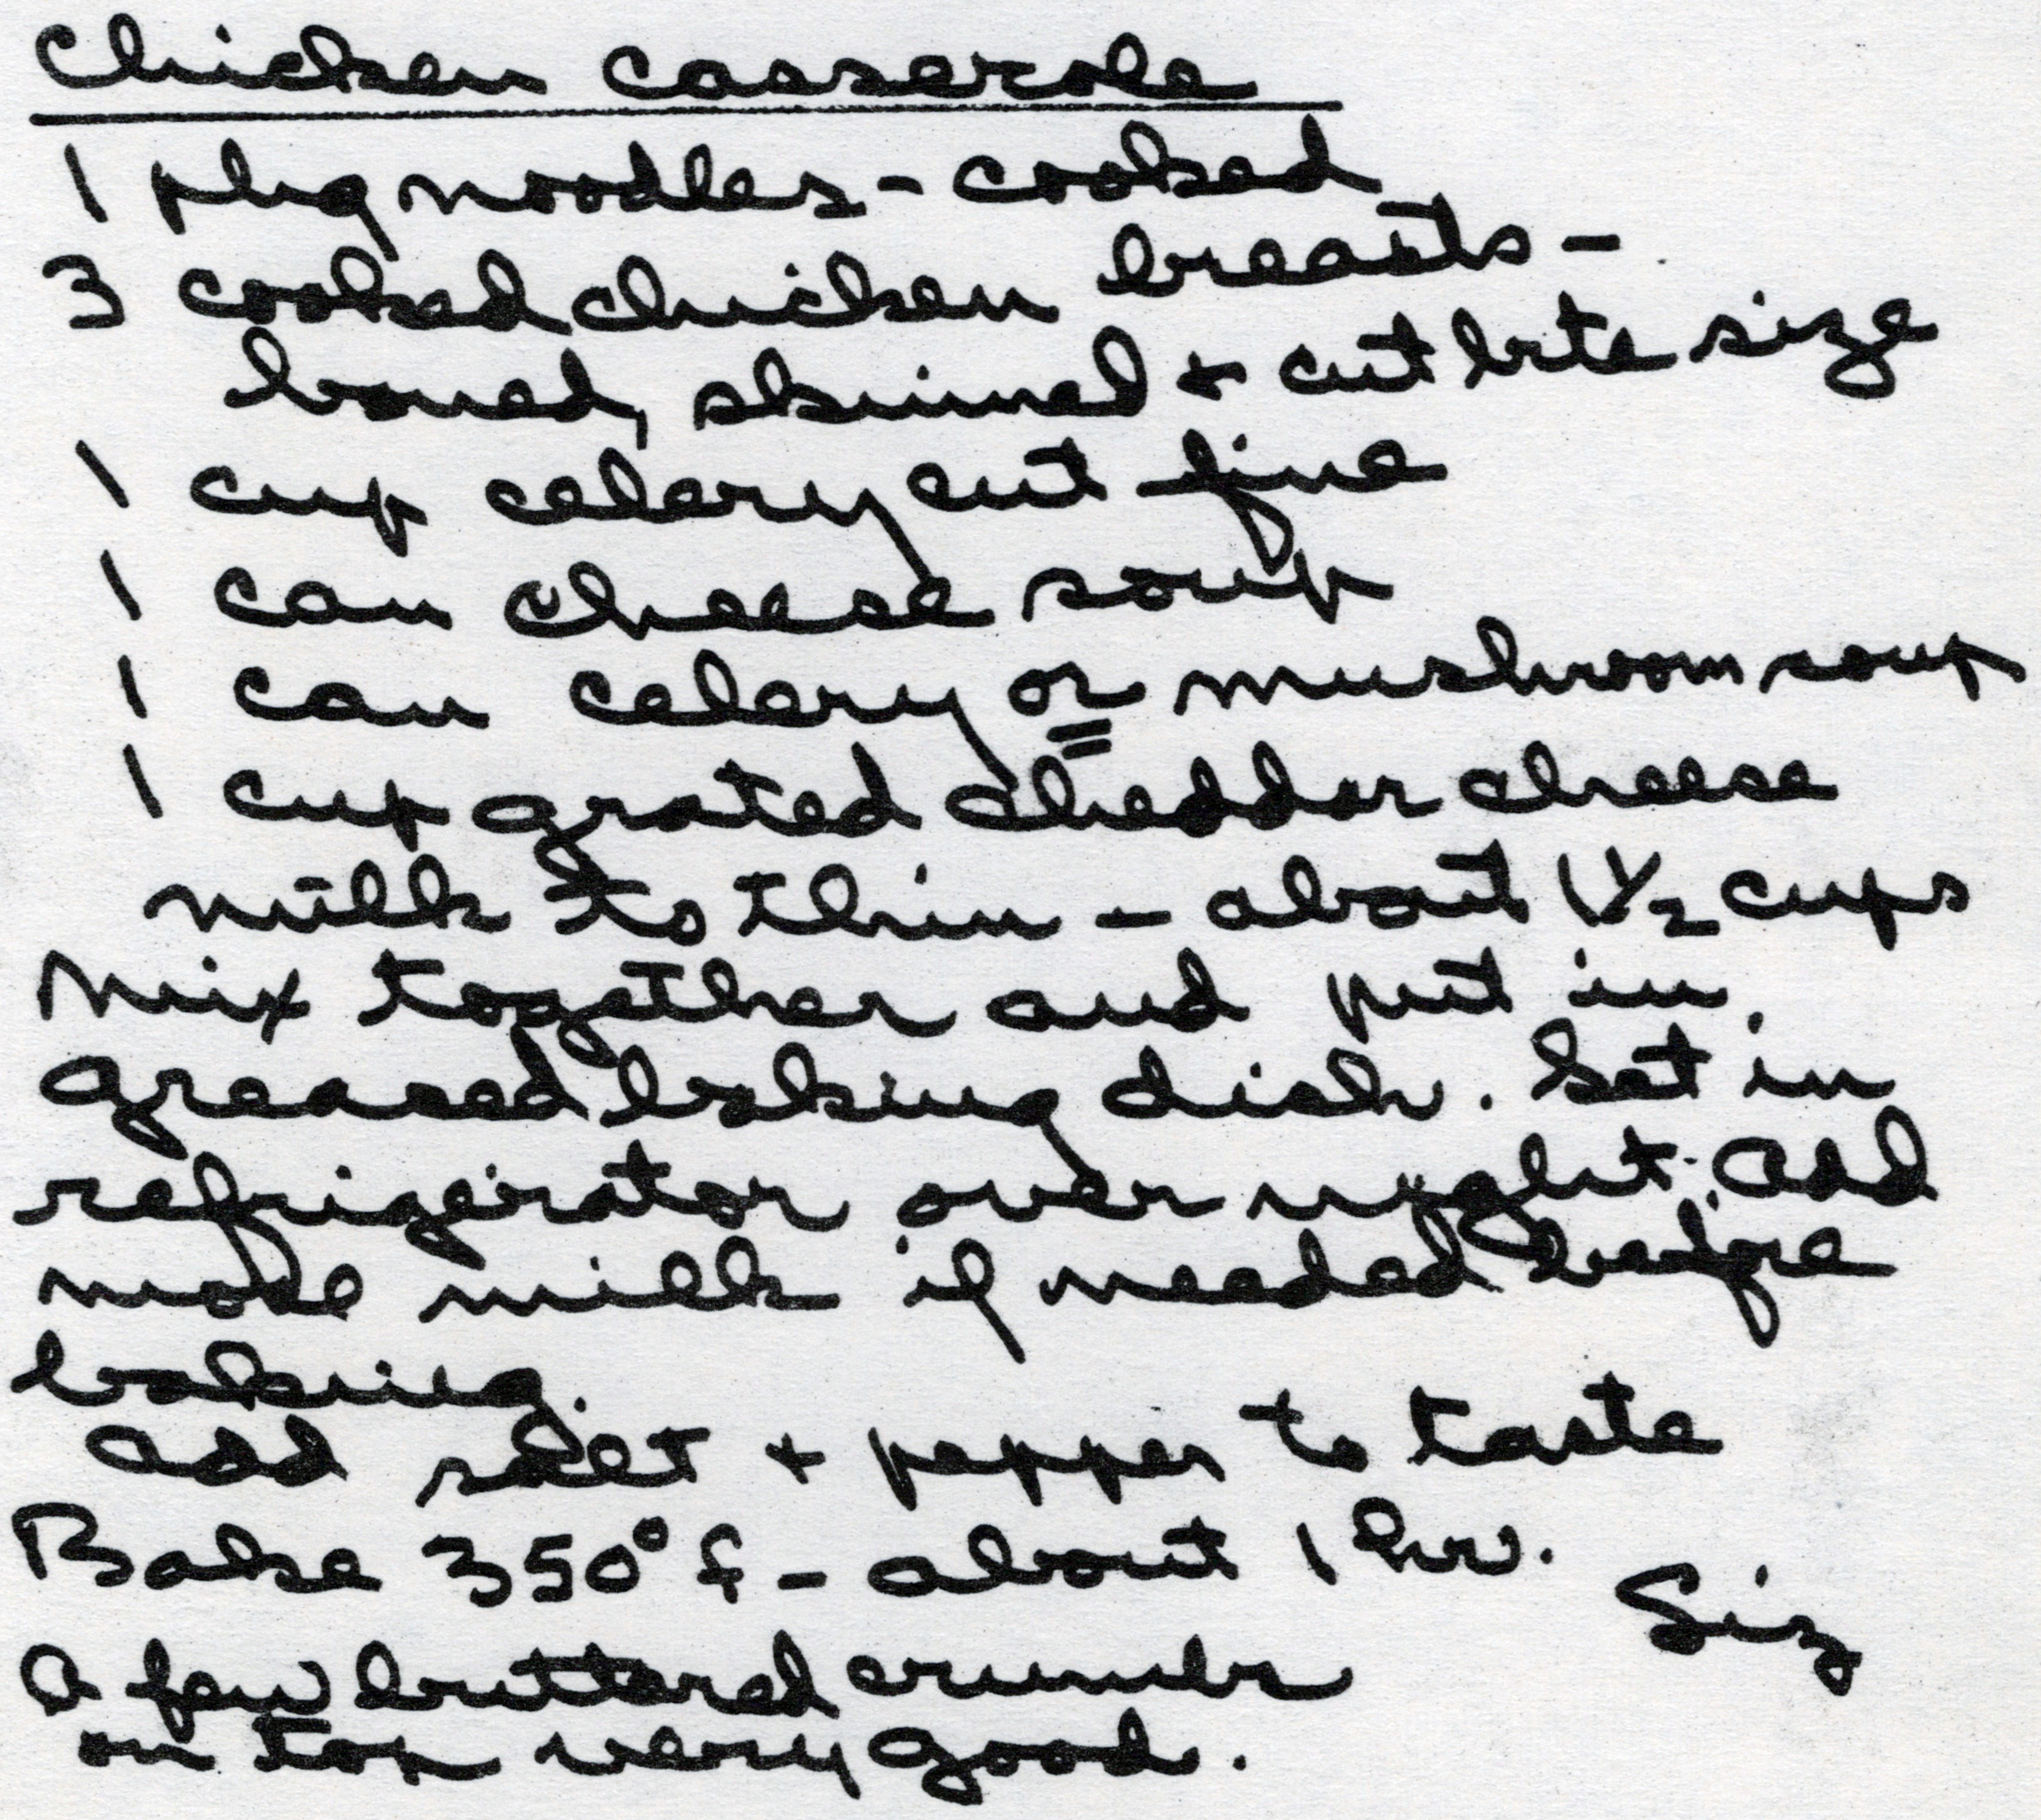 Chicken Casserole
1 pkg noodles - cooked
3 cooked chicken breasts -
boned, skinned + cut bite size
1 cup celery cut fine
1 can cheese soup
1 can celery or mushroom soup
1 cup grated cheddar cheese
milk to thin - about 1 1/2 cups
Mix together and put in
greased baking dish. Set in
refrigerator over night. Add
more milk if needed before
baking.
Add salt + pepper to taste
Bake 350° f - about 1 hr.
Siz
A few buttered crumbs
on top very good.